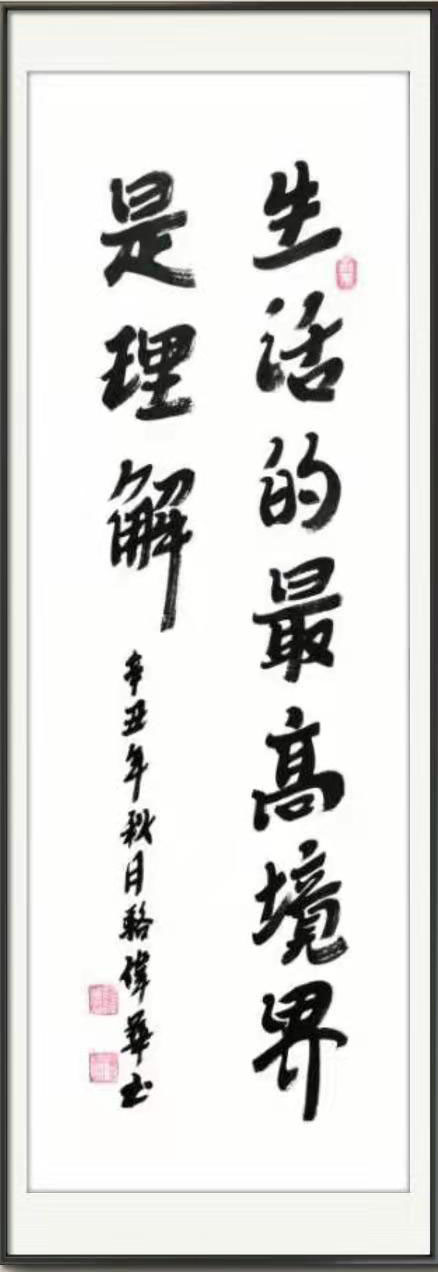 生活的最高境界
是理解
辛丑年秋月駱偉華书